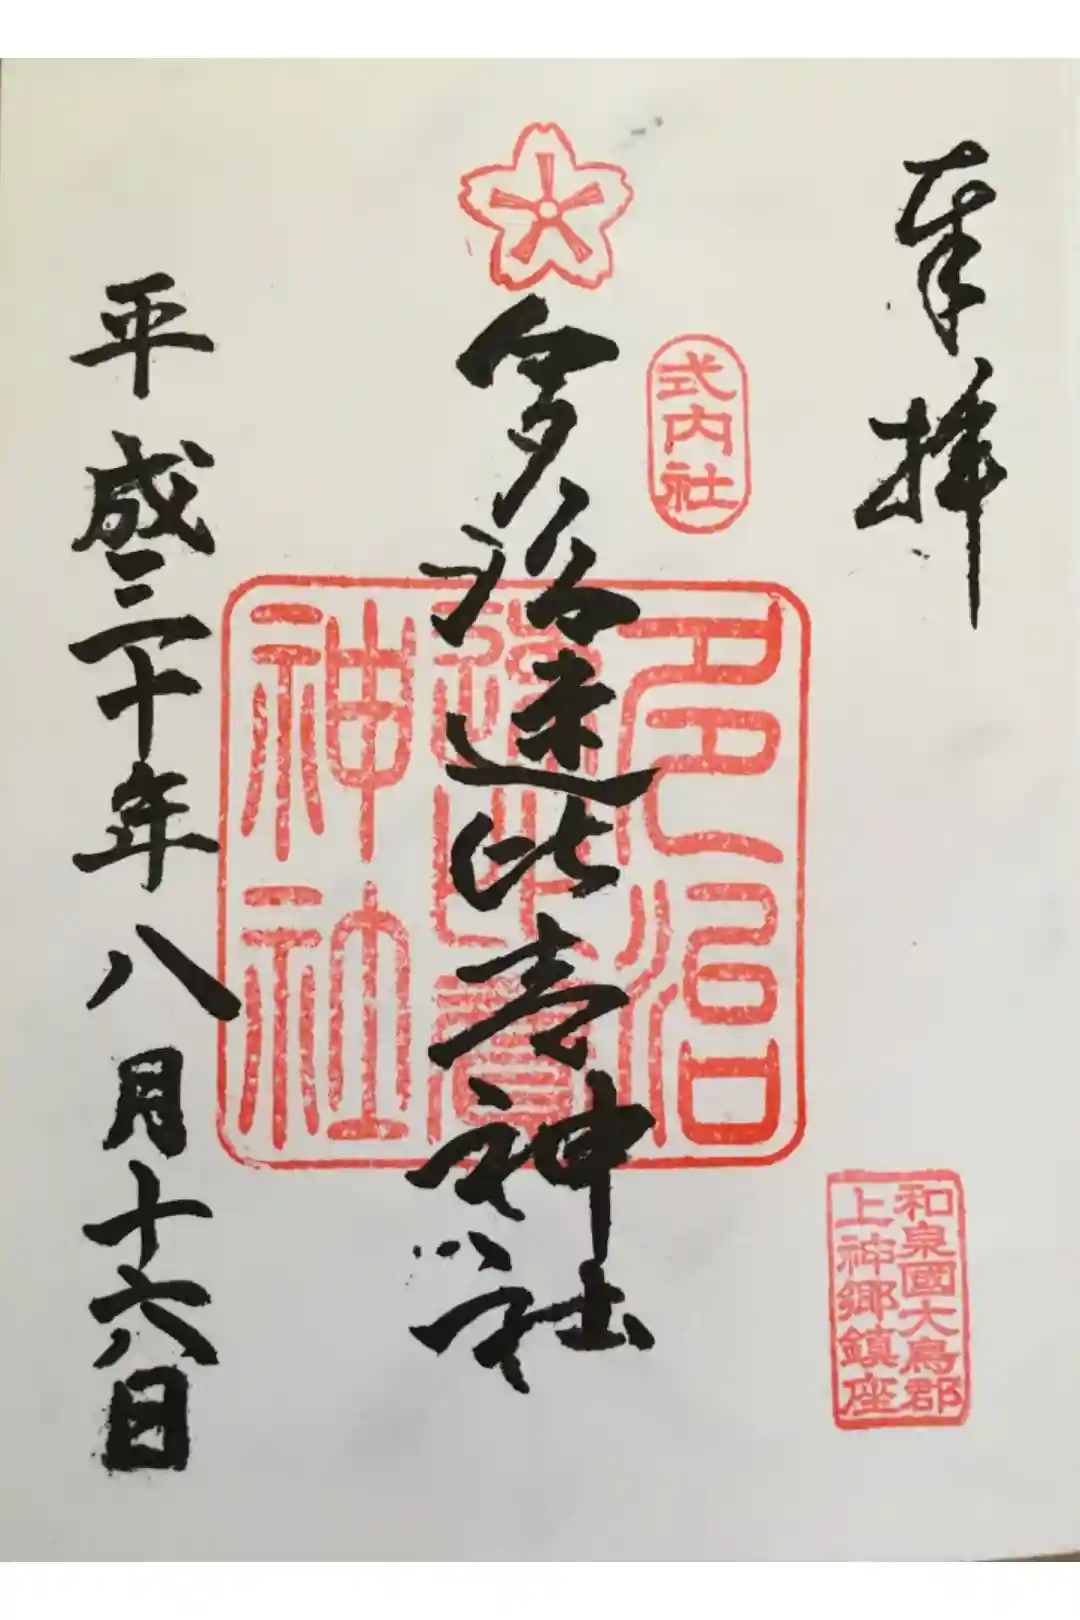 奉拝
式内社
多治速比売神社
多治
速比賣
神社
和泉國大鳥郡
上神郷鎮座
平成三十年八月十六日